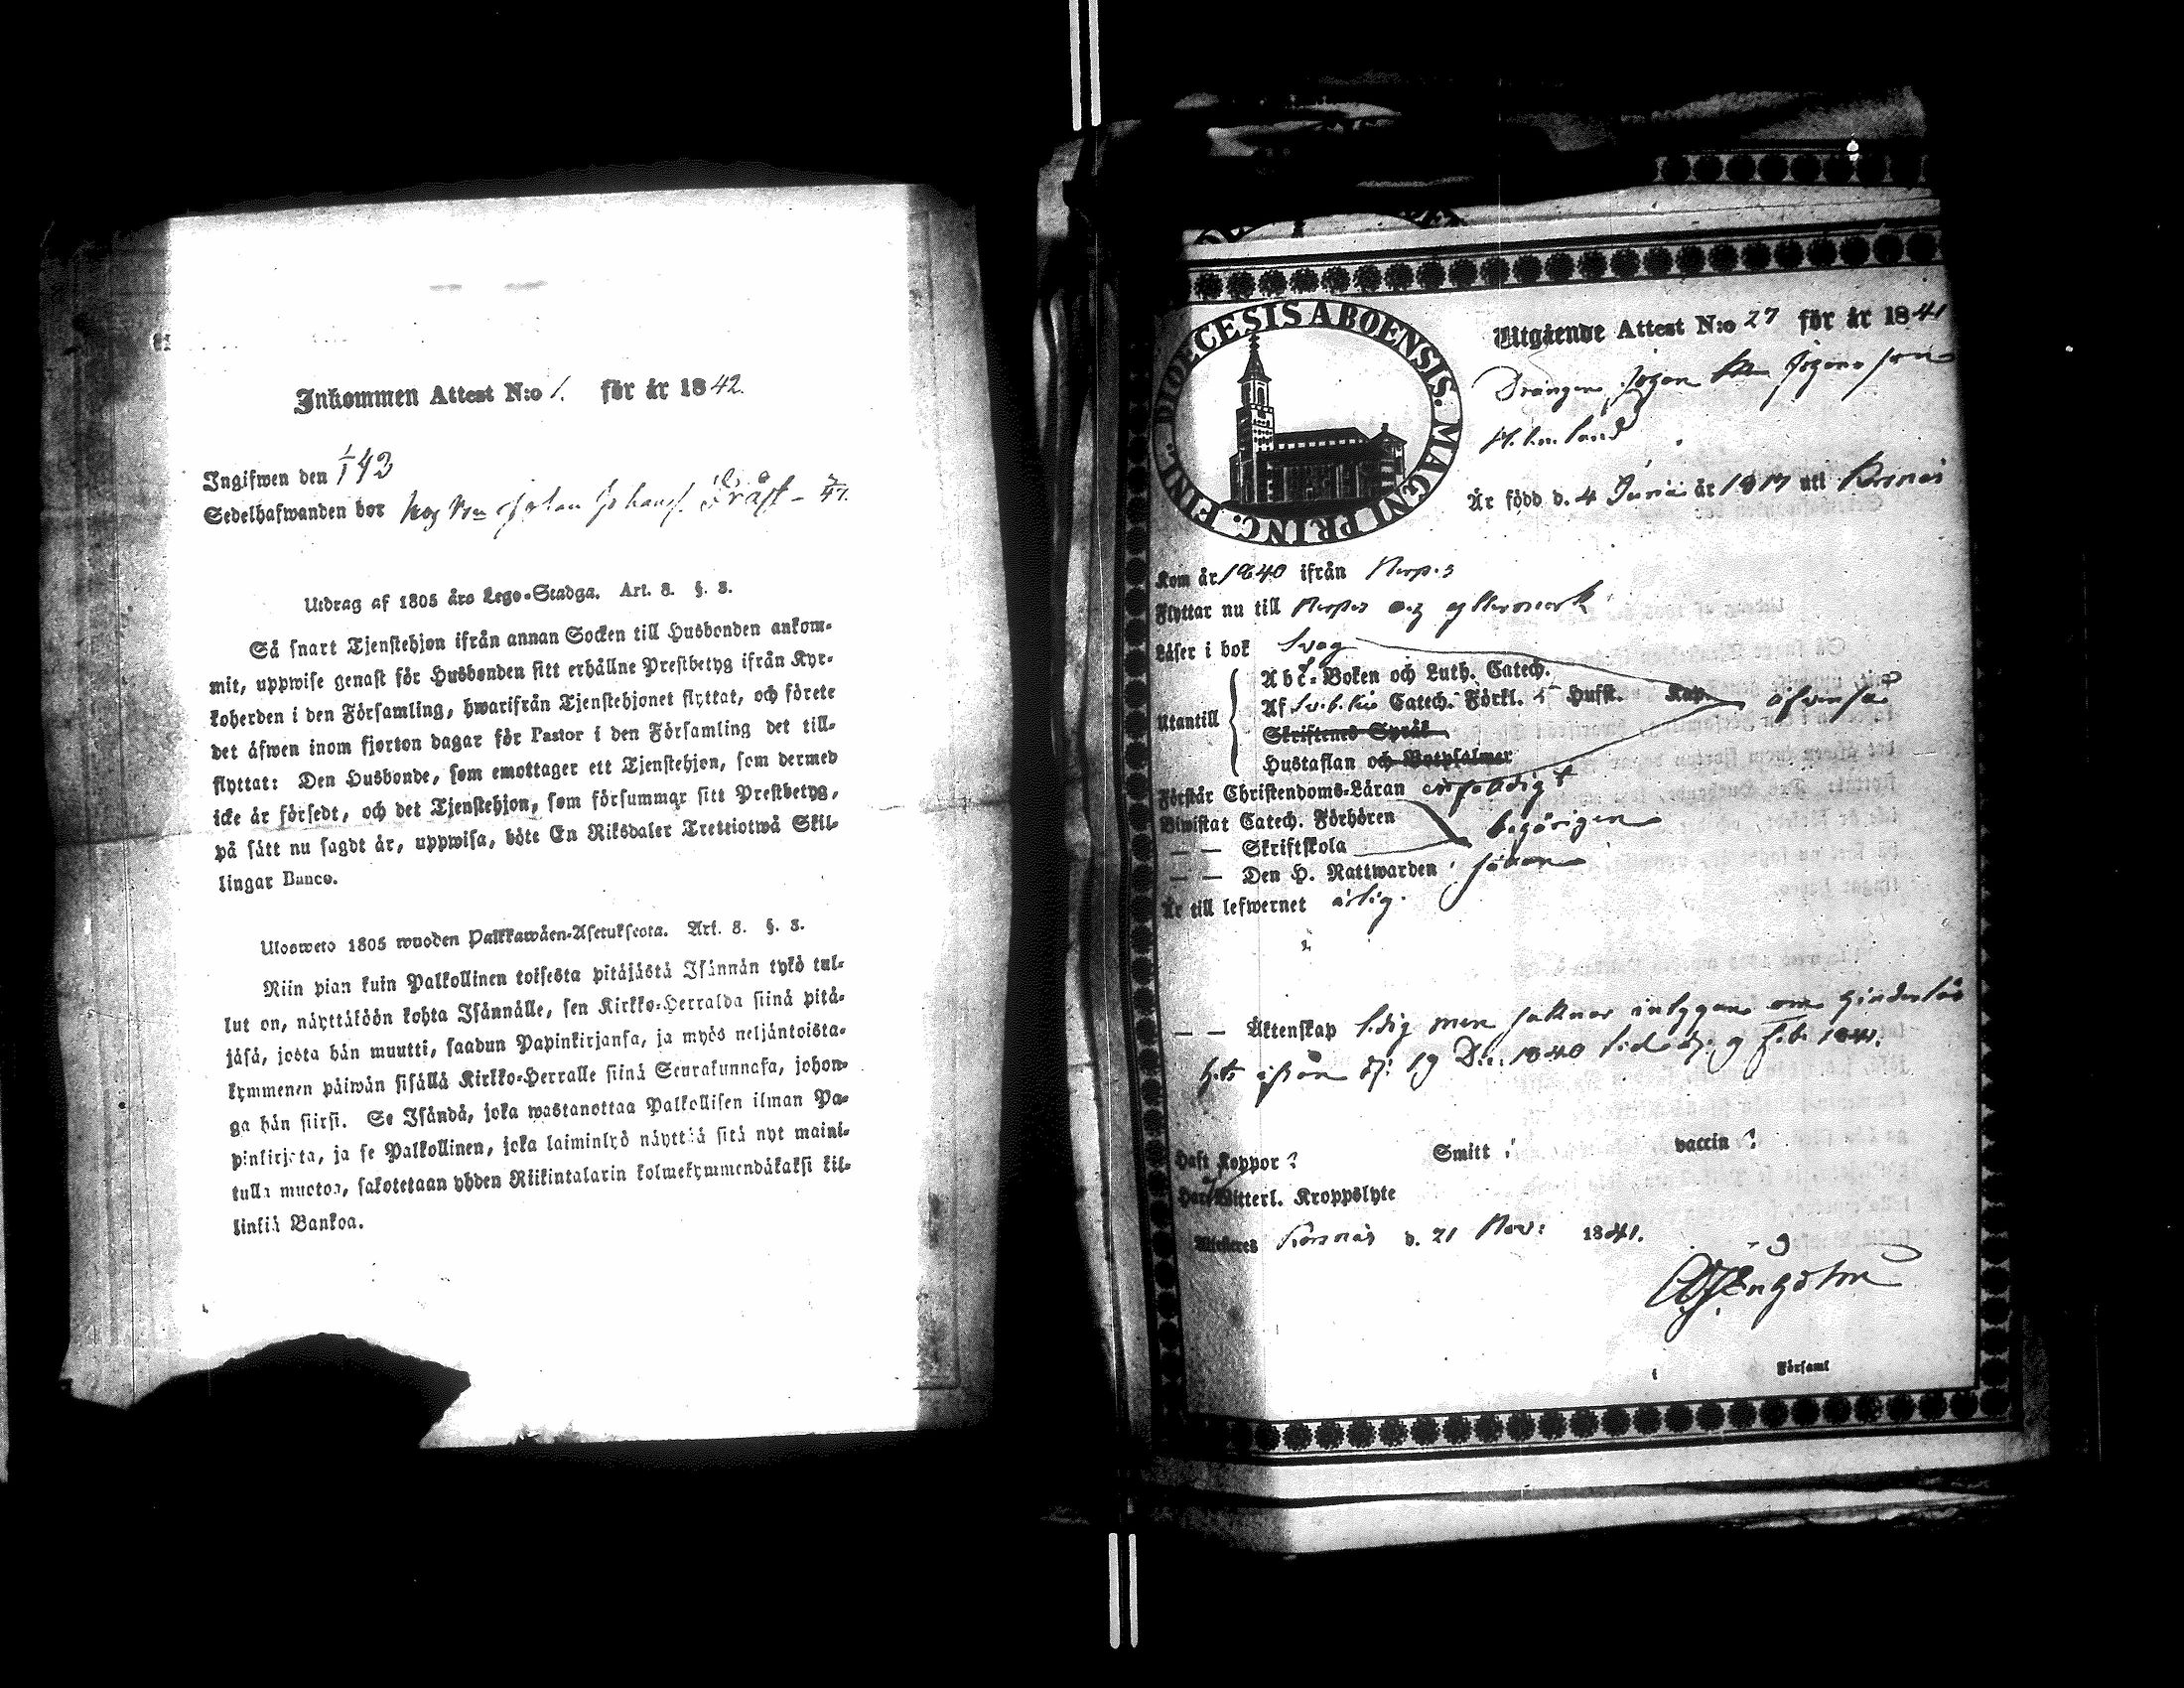 Inkommen Attest N:o 1. för år 1842.
Ingifwen den 1/1 42
Sedelhafwanden bor hos Johan Johanss.
Utdrag af 1805 års Lego-Stadga. Art. 8. §. 3.
Så snart Tjenstehjon ifrån annan Socken till Husbonden ankom-
mit, uppwise genast för Husbonden sitt erhållne Prestbetyg ifrån Kyr-
koherden i den Församling, hwarifrån Tjenstehjonet flyttat, och förete
det äfwen inom fjorton dagar för Pastor i den Församling det till-
flyttat: Den Husbonde, som emottager ett Tjenstehjon, som dermed
icke är försedt, och det Tjenstehjon, som försummar sitt Prestbetyg,
på sätt nu sagdt är, uppwisa, böte En Riksdaler Trettiotwå Skil-
lingar Banco.
Ulosweto 1805 wuoden Palkkawäen-Asetuksesta. Art. 8. §. 3.
Niin pian kuin Palkollinen toisesta pitäjästä Isännän tykö tul-
lut on, näyttäköön kohta Isännälle, sen Kirkko-Herralda siinä pitä-
jäsä, josta hän muutti, saadun Papinkirjansa, ja myös neljäntoista-
kymmenen päiwän sisällä Kirkko-Herralle siinä Seurakunnasa, johon-
ga hän siirsi. Se Isändä, joka wastanottaa Palkollisen ilman Pa-
pinkirjata, ja se Palkollinen, joka laiminlyö näyttää sitä nyt maini-
tulla muotoa, sakotetaan yhden Riikintalarin kolmekymmendäkaksi kil-
linkiä Bankoa.
DIOECESIS ABOENSIS. MAGNI PRINC. FINL.
Utgående Attest N:o 27 för år 1841
Drängen Johan Johansson
Är född d. 4 Junii år 1817 uti Korsnäs
Kom år 1840 ifrån Nerpes
Flyttar nu till Nerpes och yttermark
Läser i bok Svag
Utantill
Abc-Boken och Luth. Catech.
Af Svebelii Catech. Förkl. 5 Hufst. Kap. äfvenså
Skriftenes Språk
Hustaflan och Botpsalmer
Förstår Christendoms-Läran enfaldigt
Biwistat Catech. Förhören
— — Skriftskola behörigen
— — Den H. Nattwarden sådan
Är till lefwernet ärlig.
— — Äktenskap ledig men saknar intygan om hinderlös
het ifrån d: 19 Dec. 1840 till d: 9 Feb. 1841.
Haft Koppor ? Smitt vaccin ?
Har Witterl. Kroppslyte
Attesteres Korsnäs d. 21 Nov: 1841.
Församl